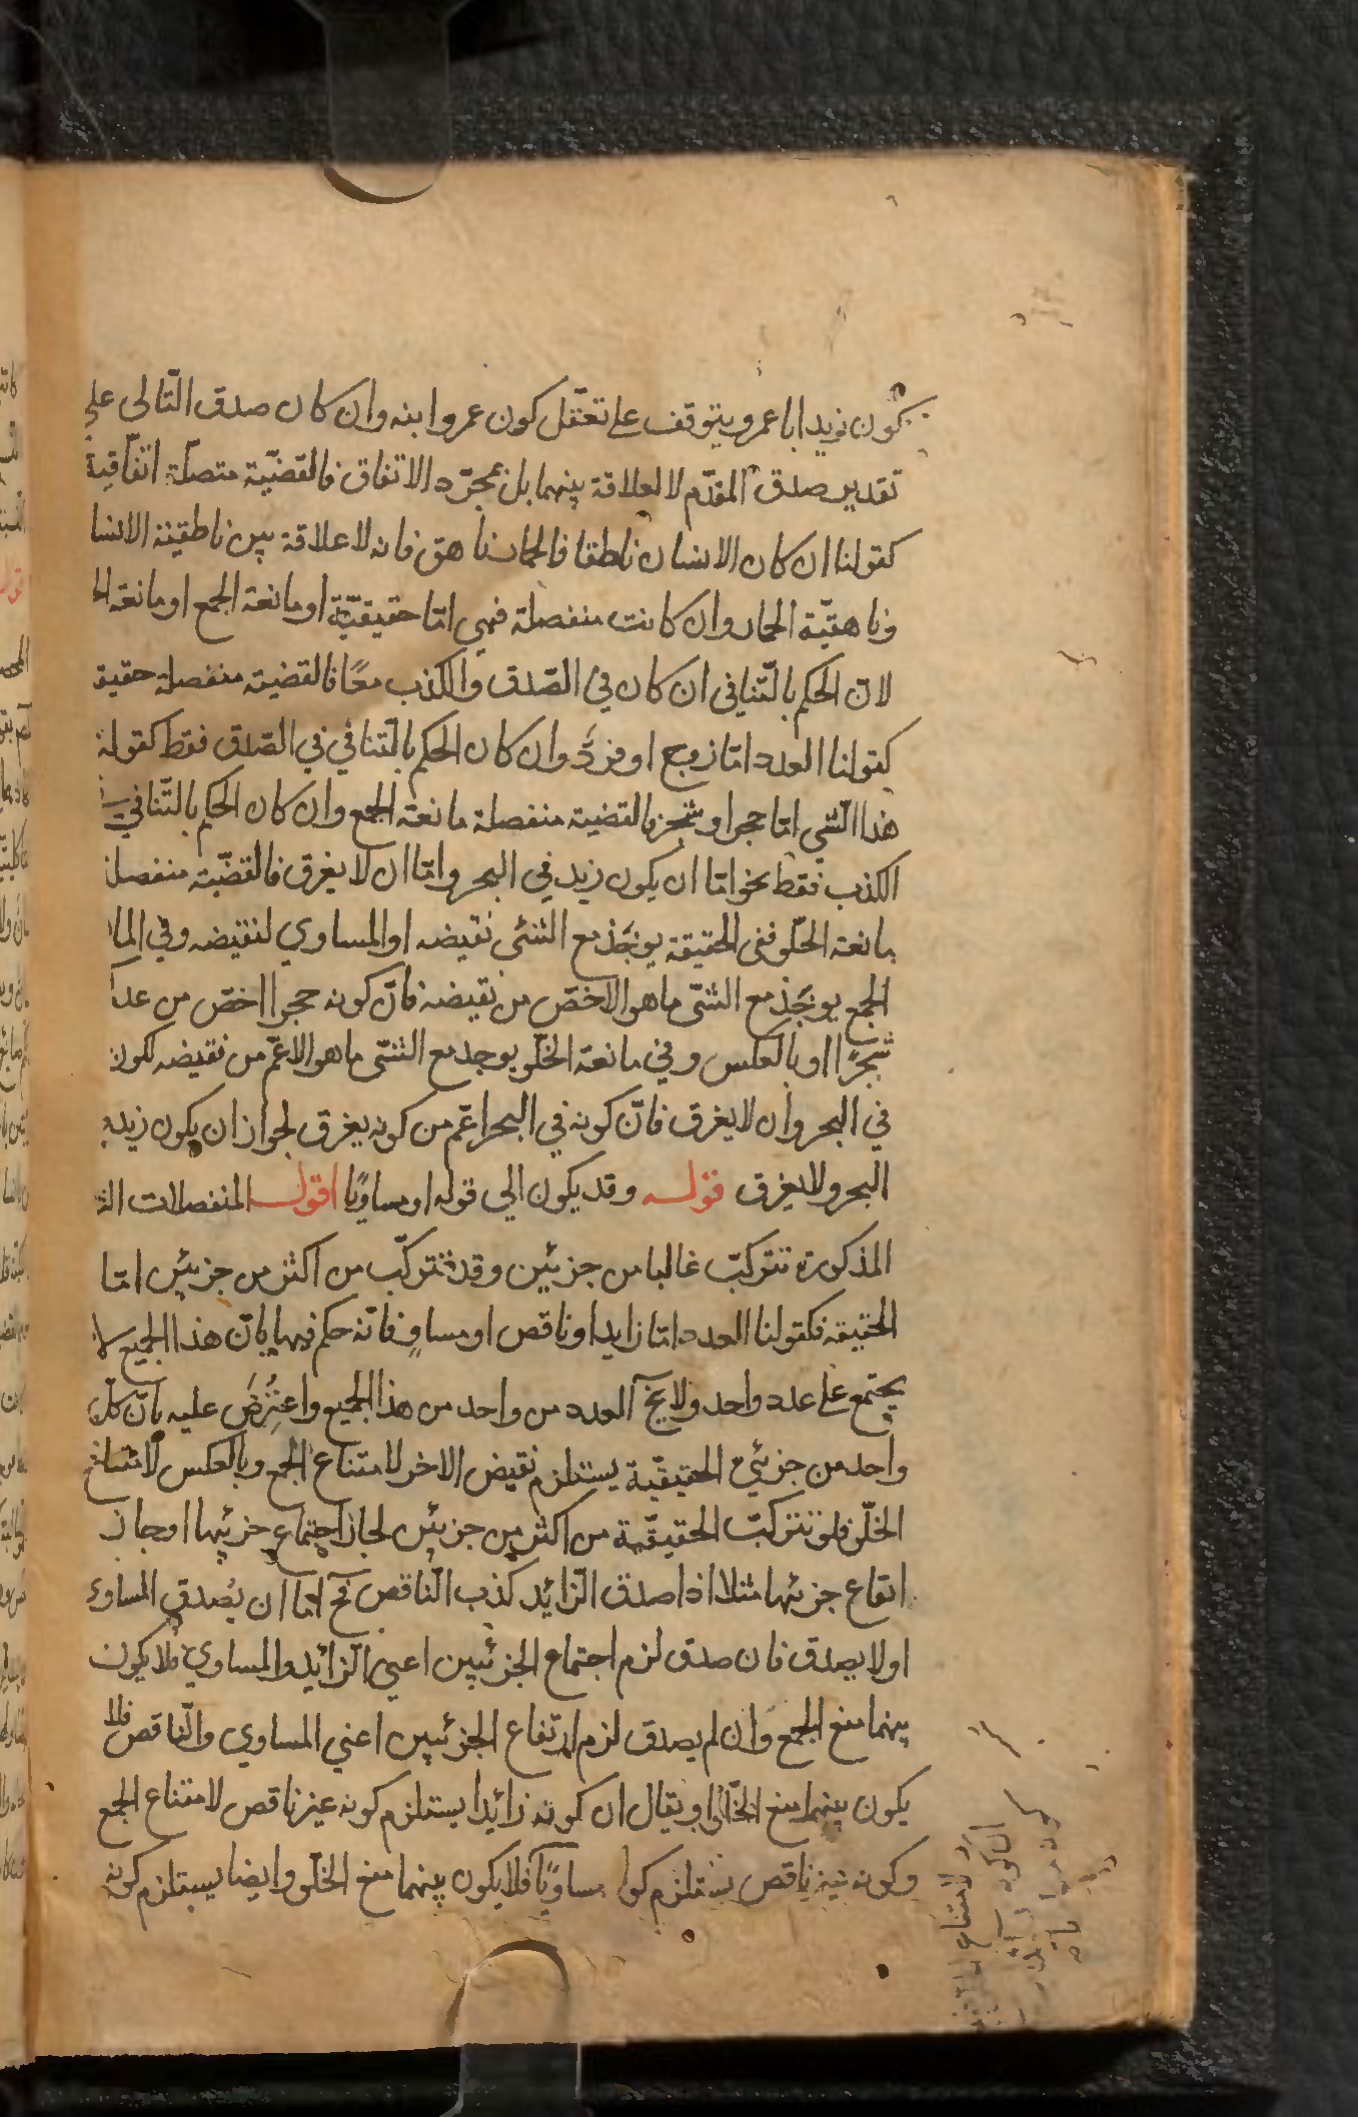 كون زيد ابا عمرو يتوقف على تعقّل كون عمرو ابنه وان كان صدق التّالى على
تقدير صدق المقدّم لا لعلاقة بينهما بل بمجرّد الاتفاق فالقضيّة متصلة اتفاقية
كقولنا ان كان الانسان ناطقا فالحمار ناهق فانه لا علاقة بين ناطقية الانسا
وناهقيّة الحمار وان كانت منفصلة فهى امّا حقيقيّة او مانعة الجمع او مانعة الخ
لان الحكم بالتّنافى ان كان في الصّدق والكذب معًا فالقضيّة منفصلة حقيق
كقولنا العدد امّا زوج او فردٌ وان كان الحكم بالتّنافي في الصّدق فقط كقولنا
هذا الشي امّا حجر او شجر فالقضيّة منفصلة مانعة الجمع وان كان الحكم بالتّنافي
الكذب فقط نحو امّا ان يكون زيد في البحر وامّا ان لا يغرق فالقضيّة منفصلة
مانعة الخلّو ففى الحقيقة يوخذ مع الشئى نقيضه او المساوي لنقيضه وفي الما
الجمع يوخذ مع الشئى ما هو الاخصّ من نقيضه فانّ كونه حجرا اخصّ من عد
شجرًا او بالعكس وفي مانعة الخلّو يوجد مع الشئى ما هو الاعمّ من نقيضه لكون
في البحر وان لا يغرق فانّ كونه في البحر اعمّ من كونه يغرق لجواز ان يكون زيد
البحر ولا يغرق قوله وقد يكون الي قوله او مساويًا اقول المنفصلات الث
المذكورة تتركّب غالبا من جزئين وقد تتركّب من اكثر من جزئين امّا
الحقيقة فكقولنا العدد امّا زايد او ناقص او مساوٍ فانّه حكم فيها بانّ هذا الجميع لا
يجتمع على عدد واحد ولا يخ العدد من واحد من هذا الجميع واعتُرِضَ عليه بانّ كلّ
واحد من جزئي الحقيقيّة يستلزم نقيض الاخر لامتناع الجمع وبالعكس لامتناع
الخلّو فلو تتركّب الحقيقيّة من اكثر من جزئين لجاز اجتماع جزئيها او جاز
ارتفاع جزئيها مثلا اذا صدق الزّائد كذب النّاقص فح امّا ان يصدق المساوي
او لا يصدق فان صدق لزم اجتماع الجزئيين اعني الزّائد والمساوي فلا يكون
بينهما منع الجمع وان لم يصدق لزم ارتفاع الجزئيين اعني المساوي والنّاقص فلا
يكون بينهما منع الخلّو او يقال ان كونه زائدا يستلزم كونه غير ناقص لامتناع الجمع
وكونه غير ناقص يستلزم كو مساويًا فلا يكون بينهما منع الخلّو وايضا يستلزم كونه
لامتناع